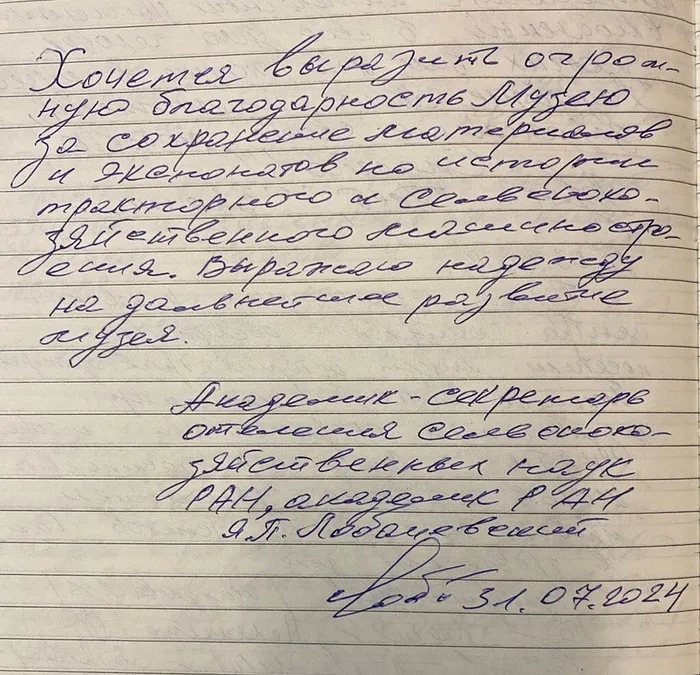 Хочется выразить огром-
ную благодарность Музею
за сохранение материалов
и экспонатов по истории
тракторного и сельскохо-
зяйственного машиностро-
ения. Выражаю надежду
на дальнейшее развитие
музея.
Академик-секретарь
отделения сельскохо-
зяйственных наук
РАН, академик РАН
Я.П. Лобачевский
31.07.2024